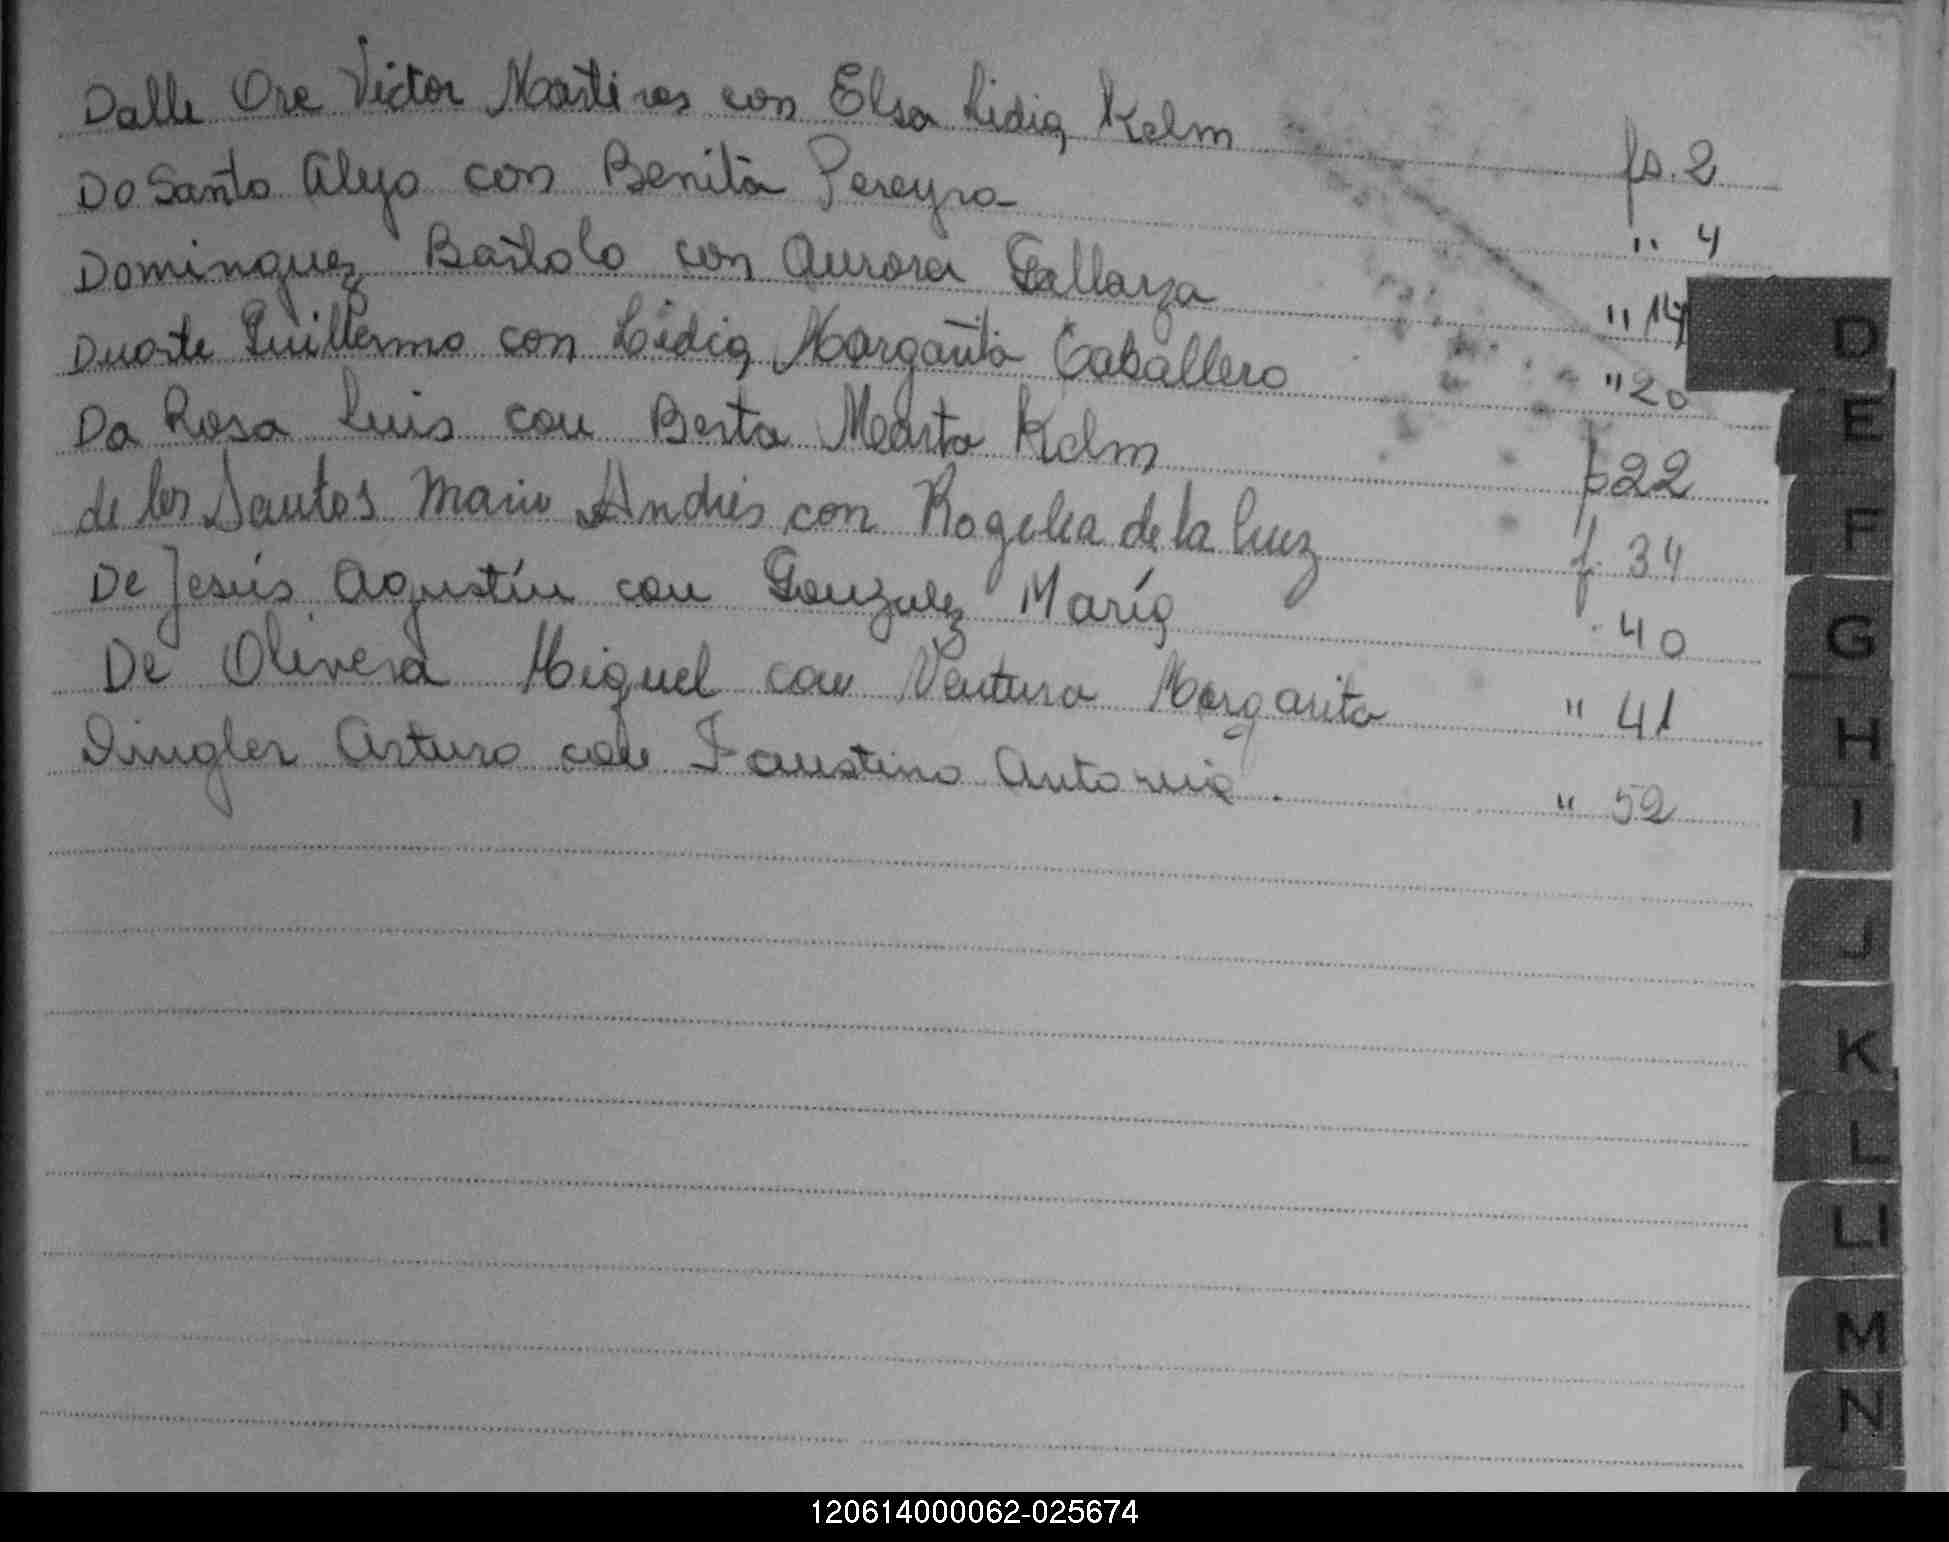 Dalle Ore Victor Martires con Elsa Lidia Kelm fs. 2
Do Santo Alejo con Benita Pereyra " 4
Dominguez Bartolo con Aurora Gallarza " 14
Duarte Guillermo con Lidia Margarita Caballero " 20
Da Rosa Luis con Berta Marta Kelm f 22
de los Santos Mario Andrés con Rogelia de la Luz f. 34
De Jesús Agustín con Gonzalez María 40
De Olivera Miguel con Ventura Margarita " 41
Dingler Arturo con Faustino Antonia. " 52
D
E
F
G
H
I
J
K
L
Ll
M
N
120614000062-025674